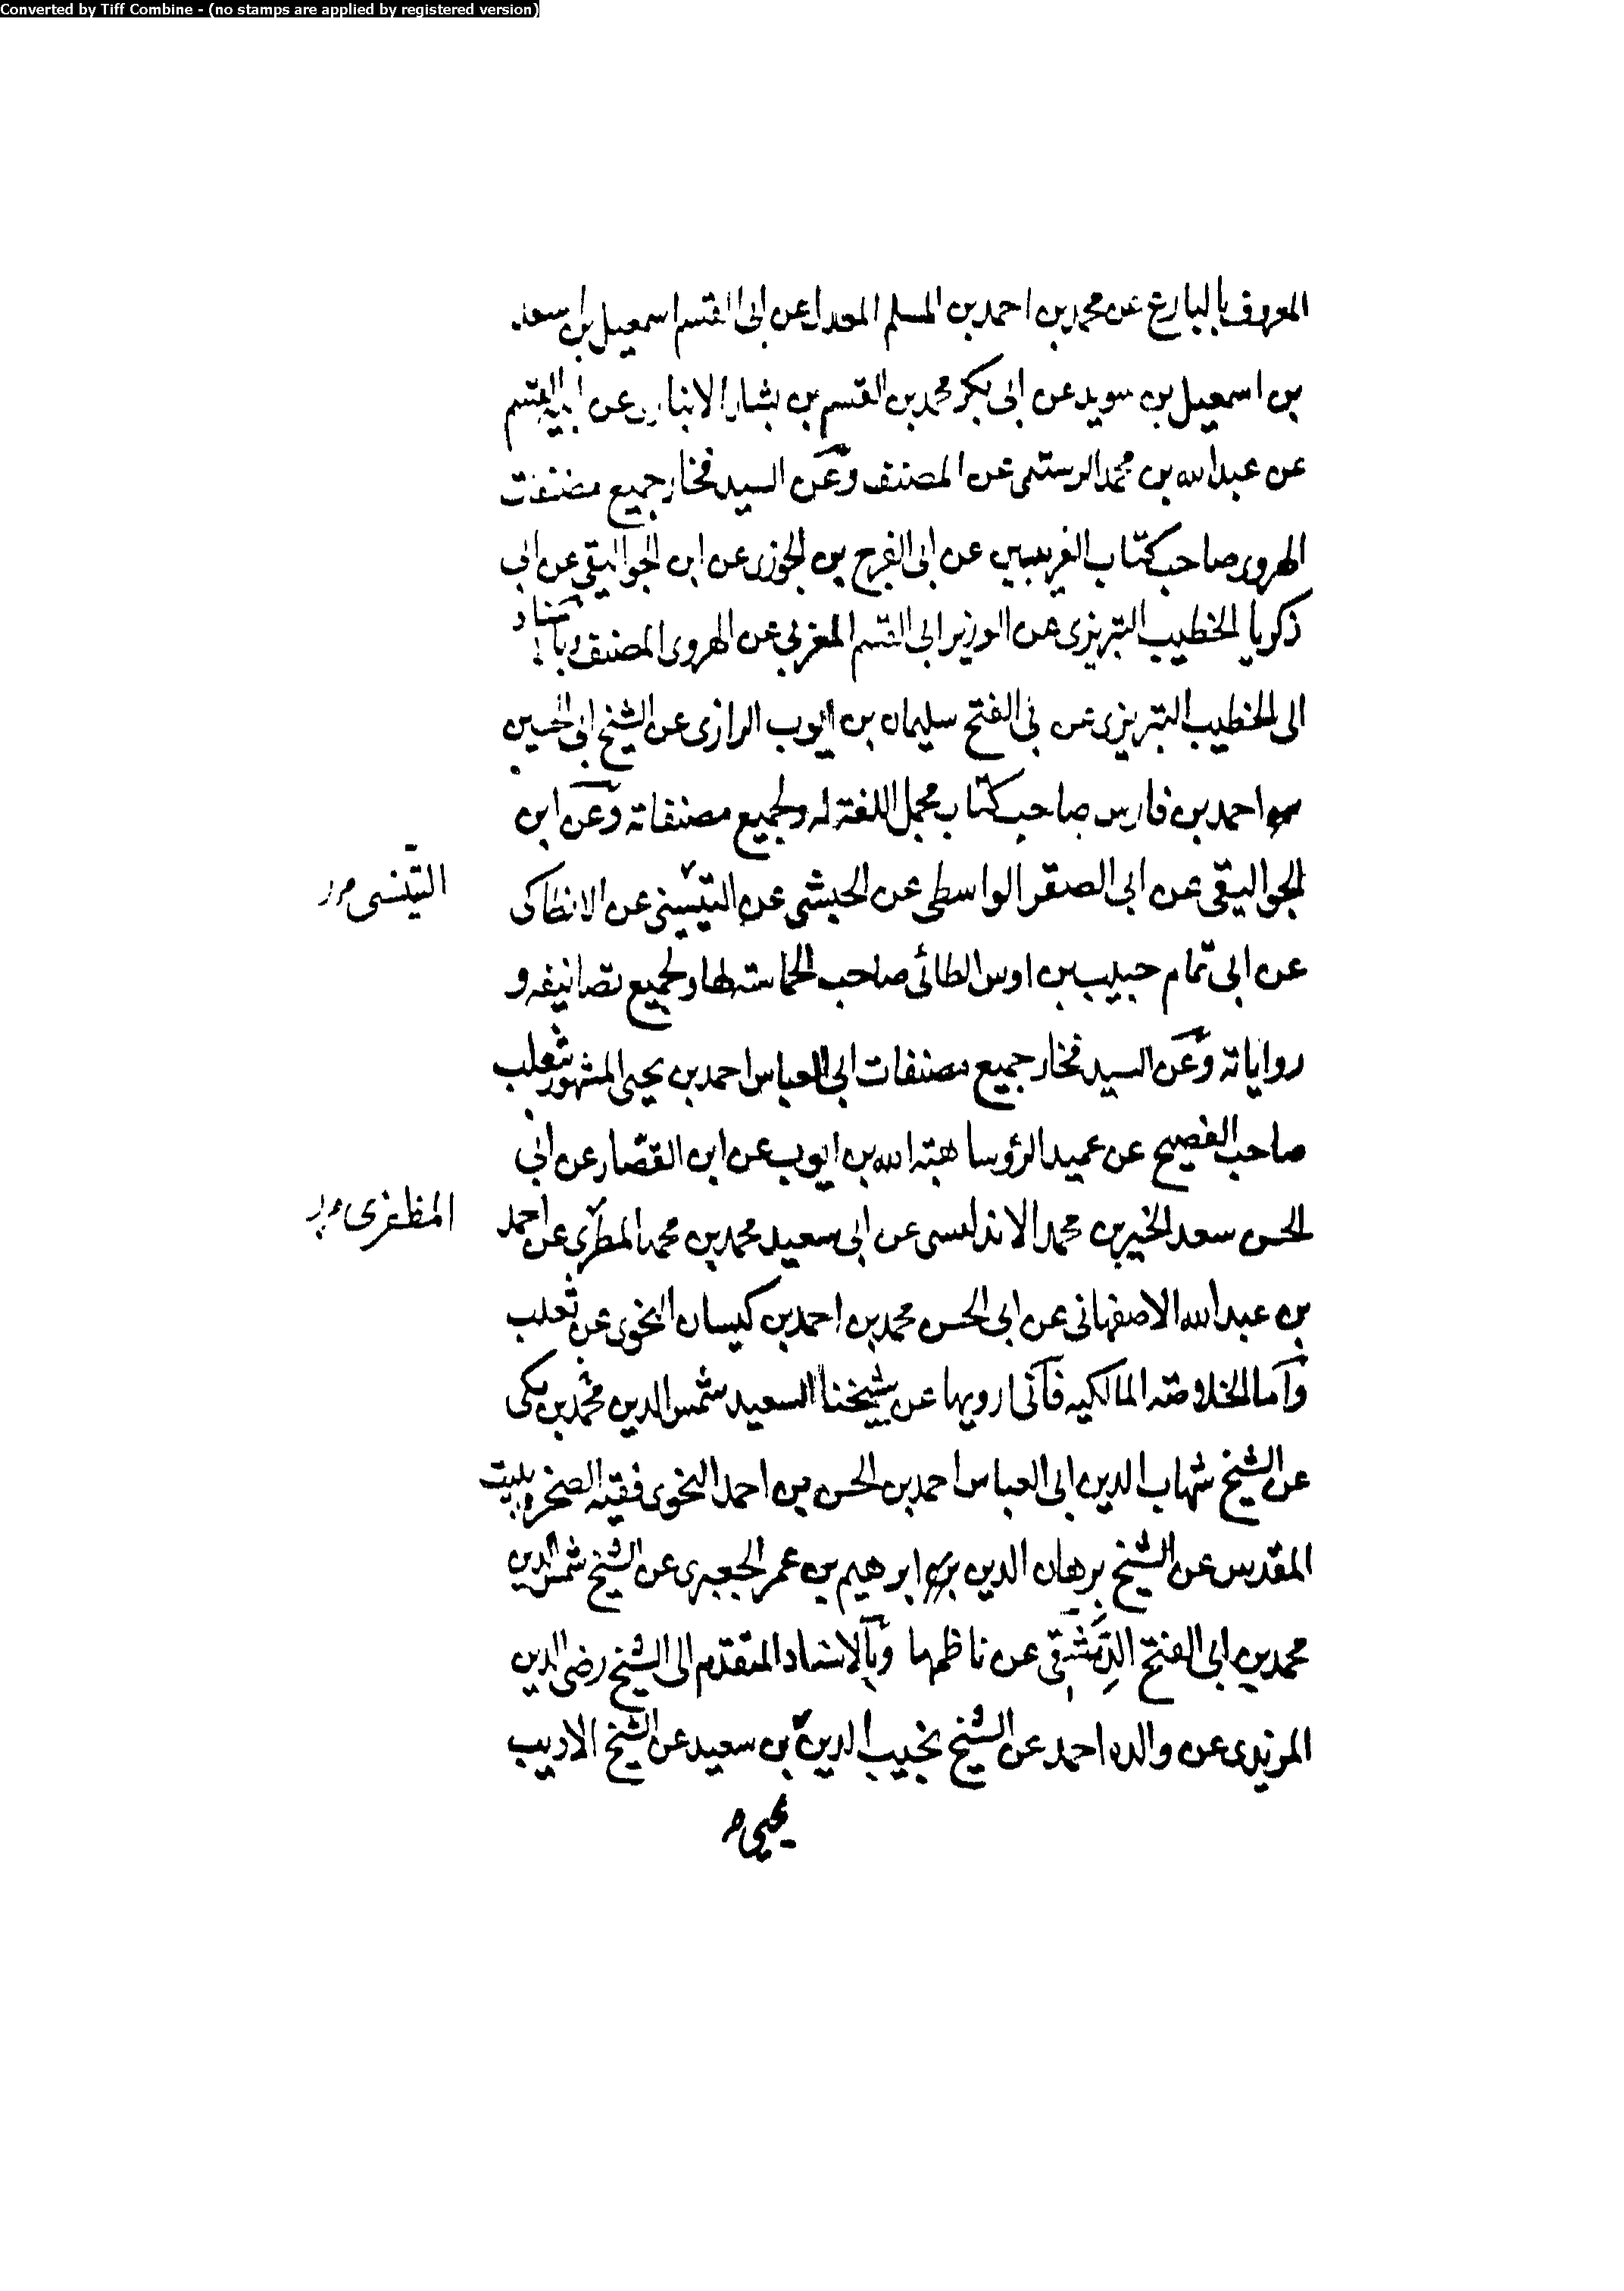 Converted by Tiff Combine - (no stamps are applied by registered version)
المعروف بالبارع عن محمد بن احمد بن المسلم المعدل عن ابى القسم اسمعيل بن سعد
بن اسمعيل بن سويد عن ابى بكر محمد بن القسم بن بشار الانبارى عن ابيه القسم
عن عبد الله بن محمد الرستمى عن المصنف وعن السيد فخار جميع مصنفات
الهروى صاحب كتاب الغريبين عن ابى الفرج بن الجوزى عن ابن الجواليقى عن ابى
ذكريا الخطيب التبريزى عن الوزير ابى القسم المغربى عن الهروى المصنف وباسناد
الى الخطيب التبريزى عن بى الفتح سليمان بن ايوب الرازى عن الشيخ ابى الحسين
احمد بن فارس صاحب كتاب مجمل اللغة له ولجميع مصنفاته وعن ابن
الجواليقى عن ابى الصقر الواسطى عن الحبشى عن التنيسى عن الانطاكى
التنسى
عن ابى تمام حبيب بن اوس الطائى صاحب الحماسة لها ولجميع تصانيفه و
رواياته وعن السيد فخار جميع مصنفات ابى العباس احمد بن يحيى المشهور بثعلب
صاحب الفصيح عن عميد الرؤسا هبة الله بن ايوب عن ابن القصار عن ابى
الحسن سعد الخير بن محمد الاندلسى عن ابى سعيد محمد بن محمد المطرزى عن احمد
المظفرى
بن عبد الله الاصفهانى عن ابى الحسن محمد بن احمد بن كيسان النحوى عن ثعلب
وأما الخلاصة المالكيه فأنى ارويها عن شيخنا السعيد شمس الدين محمد بن مكى
عن الشيخ شهاب الدين ابى العباس احمد بن الحسن بن احمد النحوى فقيه الصخرة ببيت
المقدس عن الشيخ برهان الدين ابرهيم بن عمر الجعبرى عن الشيخ شمس الدين
محمد بن ابى الفتح الدمشقى عن ناظمها وبالاسناد المتقدم الى الشيخ رضى الدين
المزيدى عن والده احمد عن الشيخ نجيب الدين بن سعيد عن الشيخ الاديب
يحيى